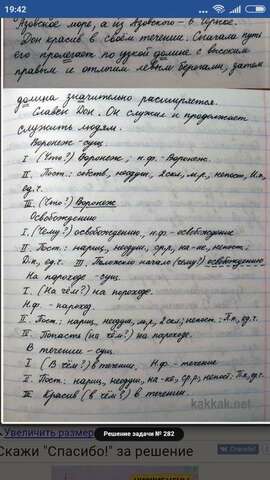 19:42
Азовское море, а из Азовского – в Чёрное.
Дон красив в своём течении. Сначала путь
его пролегает по узкой долине с высоким
правым и отлогим левым берегами, затем
долина значительно расширяется.
Славен Дон. Он служил и продолжает
служить людям.
Воронеж – сущ.
I (Что?) Воронеж, н.ф. – Воронеж.
II. Пост.: собств., неодуш., 2скл., м.р., непост.: И.п.,
ед.ч.
III. (Что?) Воронеж
Освобождению
I. (Чему?) освобождению, н.ф. – освобождение
II. Пост.: нариц., неодуш., ср.р., на -ие, непост.:
Д.п., ед.ч. III. Положило начало (чему?) освобождению
На пароходе – сущ.
I. (На чём?) на пароходе.
Н.ф. – пароход.
II. Пост.: нариц., неодуш., м.р., 2 скл.; непост.: П.п., ед.ч.
III. Попасть (на чём?) на пароходе.
В течении – сущ.
I (В чём?) в течении. Н.ф. – течение
II. Пост.: нариц., неодуш., на -ие, ср.р., непост.: П.п., ед.ч.
III Красив (в чём?) в течении.
kakkak.net
Увеличить размер
Решение задачи № 282
Скажи "Спасибо!" за решение